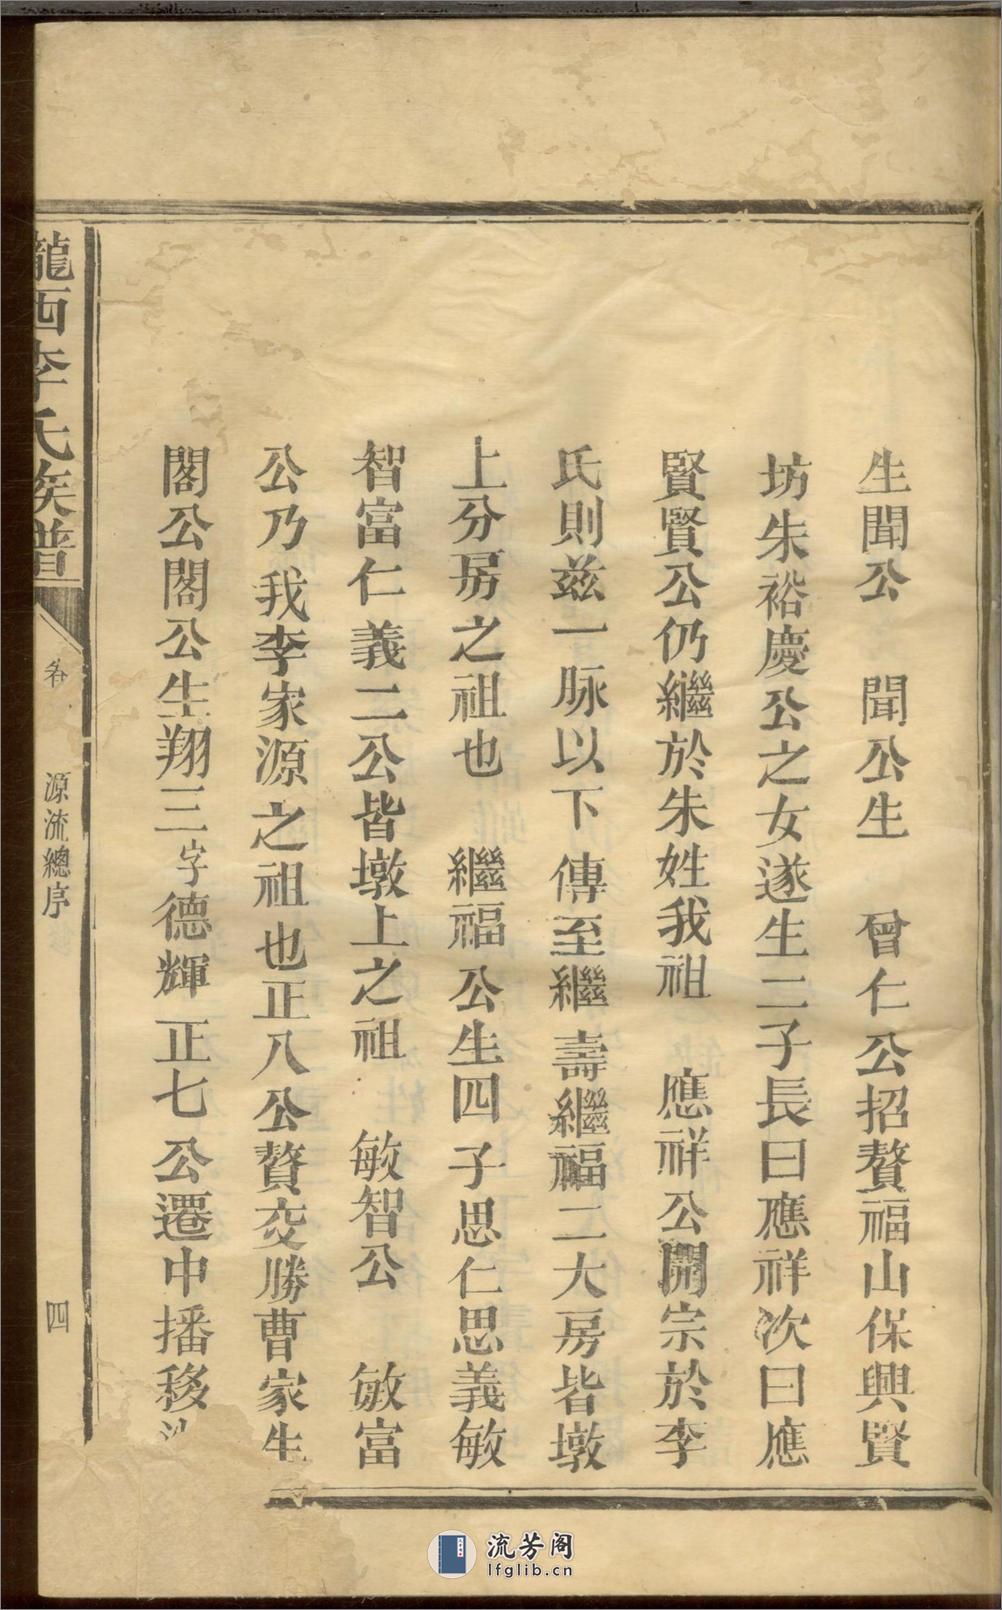 生聞公　聞公生　曾仁公招贅福山保興賢
坊朱裕慶公之女遂生二子長曰應祥次曰應
賢賢公仍繼於朱姓我祖　應祥公開宗於李
氏則茲一脉以下傳至繼壽繼福二大房皆墩
上分房之祖也　繼福公生四子思仁思義敏
智富仁義二公皆墩上之祖　敏智公　敏富
公乃我李家源之祖也正八公贅交勝曹家生
閣公閣公生翔三字德輝正七公遷中播移
隴西李氏族譜
卷
源流總序
四
流芳阁
lfglib.cn